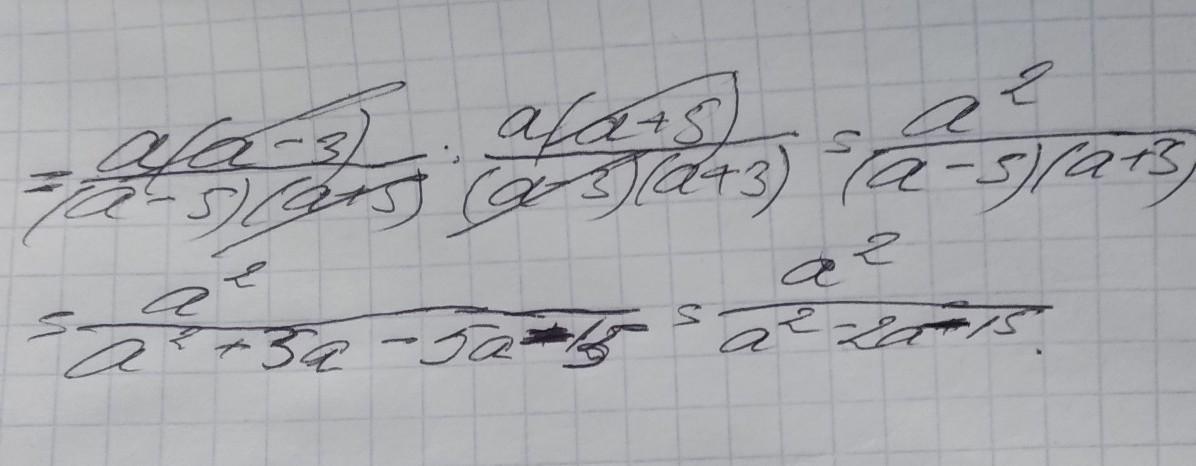 = a(a-3)/(a-5)(a+5) · a(a+5)/(a-3)(a+3) = a²/(a-5)(a+3)
= a²/a²+3a-5a-15 = a²/a²-2a-15.